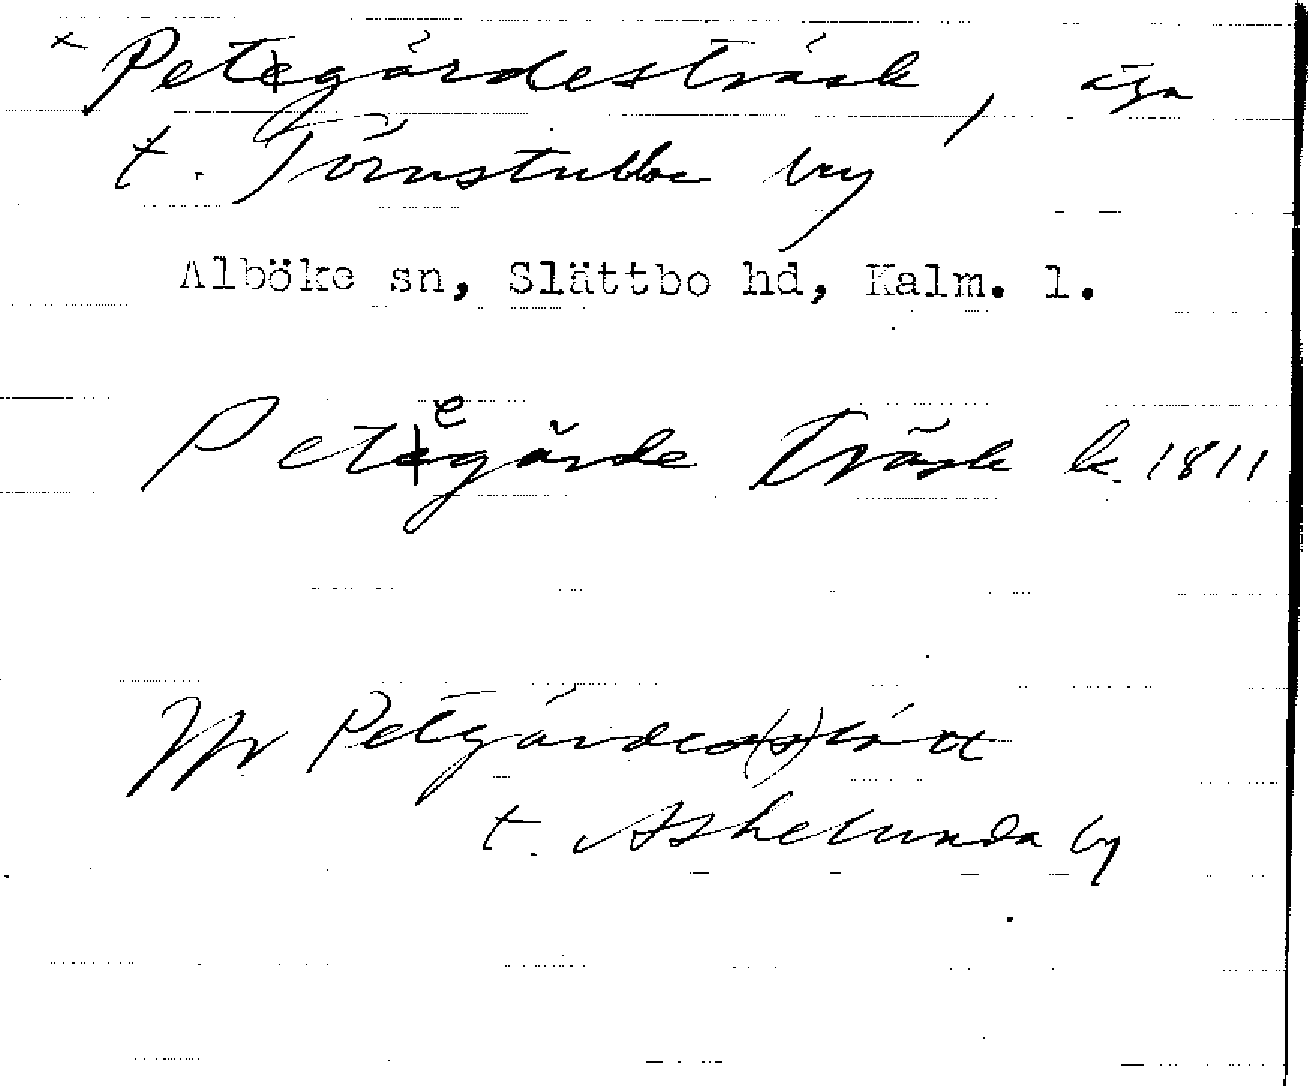 × Petegärdesträsk, äga
t. Törnstubbe by
Alböke sn, Slättbo hd, Kalm. l.
Petegärde Träsk k. 1811
Jfr Petgärdes(s)lätt
t. Askelunda by